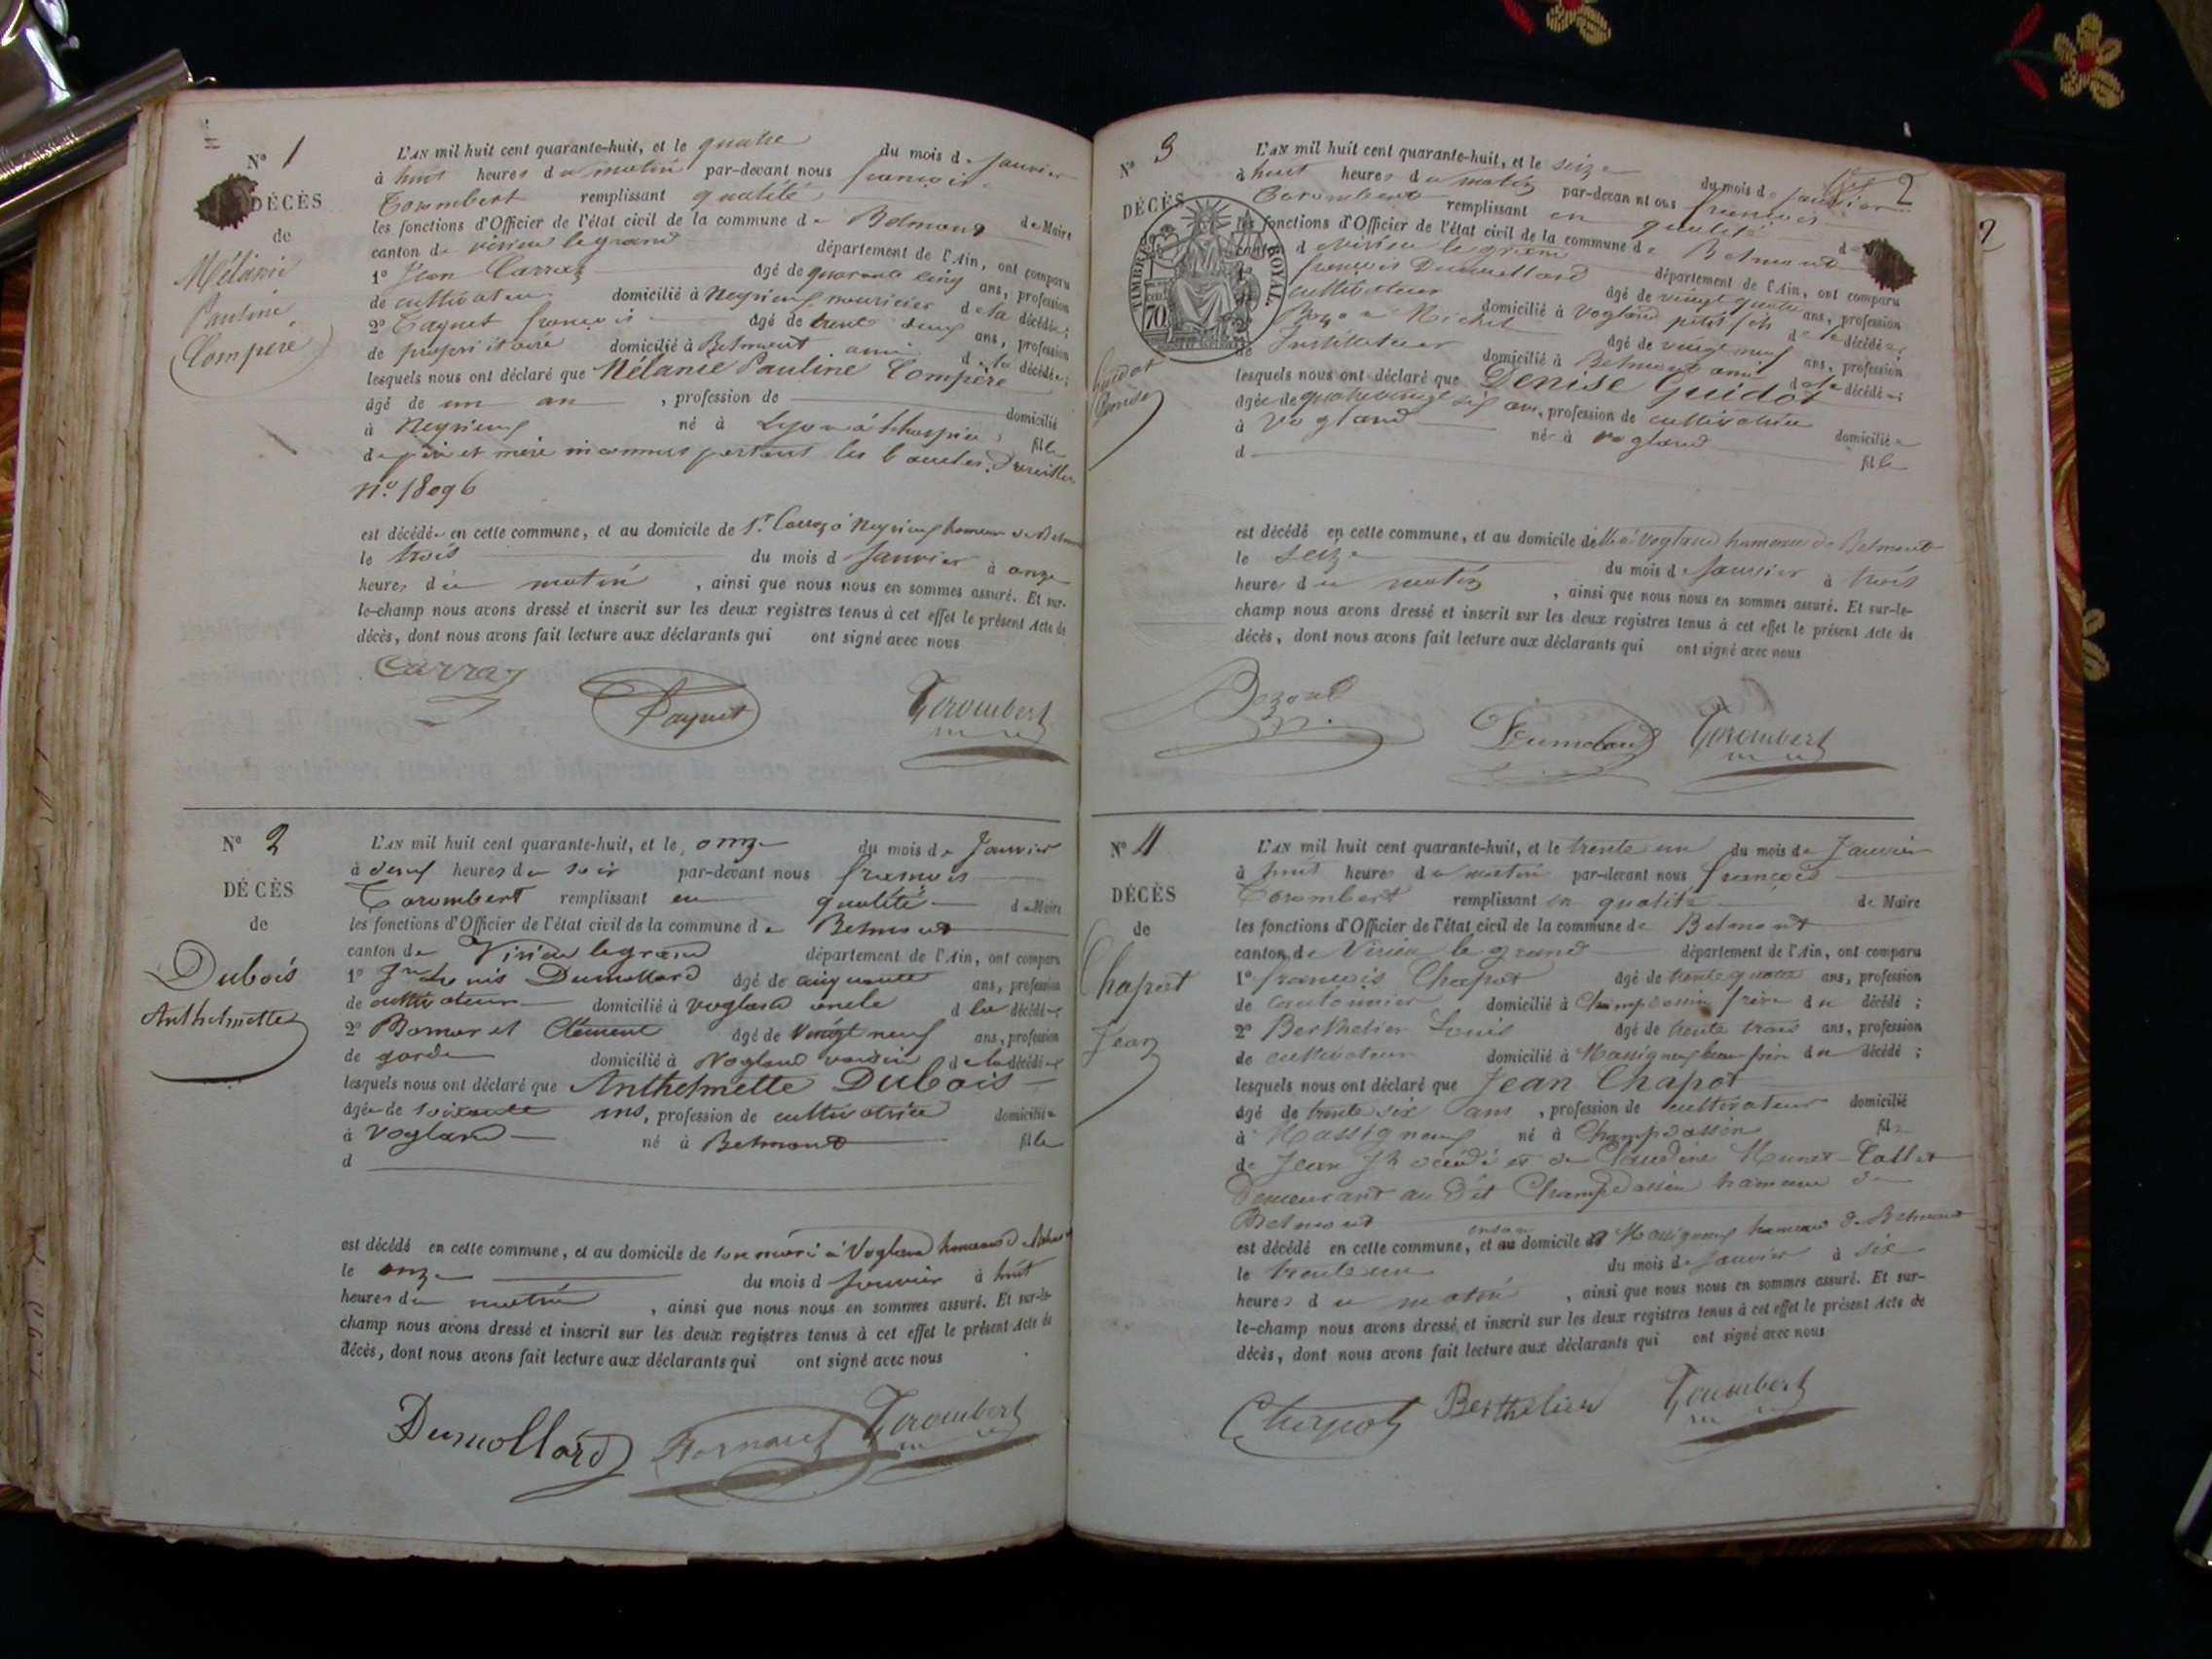 N° 1
DÉCÈS
de
Mélanie
Pauline
Compère
L'AN mil huit cent quarante-huit, et le quatre du mois de Janvier
à huit heures du matin par-devant nous françois
Corombert remplissant qualité de Maire
les fonctions d'Officier de l'état civil de la commune de Belmont
canton de virieu legrand département de l'Ain, ont comparu
1° Jean Carraz agé de quarante cinq ans, profession
de cultivateur domicilié à Neyrieux nouricier de la décédée;
2° françois agé de trente deux ans, profession
de propriétaire domicilié à Belmont ami de la décédée;
lesquels nous ont déclaré que Mélanie Pauline Compère
agé de un an, profession de domicilié
à Neyrieux né à Lyon à l'hospice fille
de père et mère inconnus portant les boucles d'oreilles
n.° 18096
est décédée en cette commune, et au domicile de Sr Carraz à Neyrieux hameau de Belmont
le trois du mois d Janvier à onze
heures du matin, ainsi que nous nous en sommes assuré. Et sur-
le-champ nous avons dressé et inscrit sur les deux registres tenus à cet effet le présent Acte de
décès, dont nous avons fait lecture aux déclarants qui ont signé avec nous
Carraz Corombert
N° 2
DÉCÈS
de
Dubois
Anthelmette
L'AN mil huit cent quarante-huit, et le onze du mois de Janvier
à deux heures du soir par-devant nous françois
Corombert remplissant en qualité de Maire
les fonctions d'Officier de l'état civil de la commune de Belmont
canton de Virieu legrand département de l'Ain, ont comparu
1° Louis Dumollard agé de cinquante ans, profession
de cultivateur domicilié à Vogland oncle d la décédée
2° Clément agé de vingt neuf ans, profession
de garde domicilié à Vogland voisin de la décédée
lesquels nous ont déclaré que Anthelmette Dubois
agée de soixante ans, profession de cultivatrice domiciliée
à Vogland né à Belmont fille
d
est décédé en cette commune, et au domicile de son mari à Vogland hameau d Belmont
le onze du mois d Janvier à huit
heures du matin, ainsi que nous nous en sommes assuré. Et sur-le-
champ nous avons dressé et inscrit sur les deux registres tenus à cet effet le présent Acte de
décès, dont nous avons fait lecture aux déclarants qui ont signé avec nous
Dumollard Corombert
2
N° 3
DÉCÈS
TIMBRE ROYAL
70
Guidot
Denise
L'AN mil huit cent quarante-huit, et le seize du mois de Janvier
à huit heures du matin par-devan nt ous françois
Corombert remplissant en qualité d
les fonctions d'Officier de l'état civil de la commune de Belmont
canton d virieu le grand département de l'Ain, ont comparu
françois Dumollard agé de vingt quatre ans, profession
cultivateur domicilié à Vogland petit fils de la décédée;
Michel agé de vingt neuf ans, profession
de Instituteur domicilié à Belmont ami de la décédée;
lesquels nous ont déclaré que Denise Guidot
agée de quatrevingt six ans, profession de cultivatrice domiciliée
à Vogland née à vogland fille
d
est décédé en cette commune, et au domicile de à Vogland hameau de Belmont
le seize du mois de Janvier à trois
heures du matin, ainsi que nous nous en sommes assuré. Et sur-le-
champ nous avons dressé et inscrit sur les deux registres tenus à cet effet le présent Acte de
décès, dont nous avons fait lecture aux déclarants qui ont signé avec nous
Corombert
N° 4
DÉCÈS
de
Chapot
Jean
L'AN mil huit cent quarante-huit, et le trente un du mois de Janvier
à huit heures du matin par-devant nous françois
Corombert remplissant en qualité de Maire
les fonctions d'Officier de l'état civil de la commune de Belmont
canton de Virieu le grand département de l'Ain, ont comparu
1° françois Chapot agé de trente quatre ans, profession
de cantonnier domicilié à Champdossin frère du décédé;
2° Berthelier Louis agé de trente trois ans, profession
de cultivateur domicilié à Massigneux beau frère du décédé;
lesquels nous ont déclaré que Jean Chapot
agé de trente six ans, profession de cultivateur domicilié
à Massigneux né à Champdossin fils
de Jean Jh décédé et de Claudine
Demeurant au dit Champdossin hameau de
Belmont
est décédé en cette commune, et au domicile Massigneux hameau de Belmont
le trente un du mois de Janvier à six
heures du matin, ainsi que nous nous en sommes assuré. Et sur-
le-champ nous avons dressé et inscrit sur les deux registres tenus à cet effet le présent Acte de
décès, dont nous avons fait lecture aux déclarants qui ont signé avec nous
Chapot Berthelier Corombert